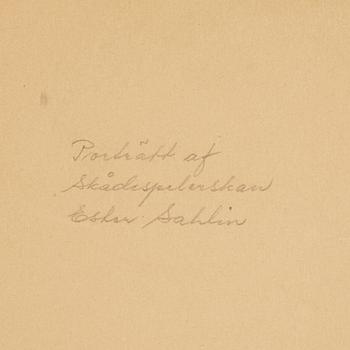 Porträtt af
Skådespelerskan
Ester Sahlin